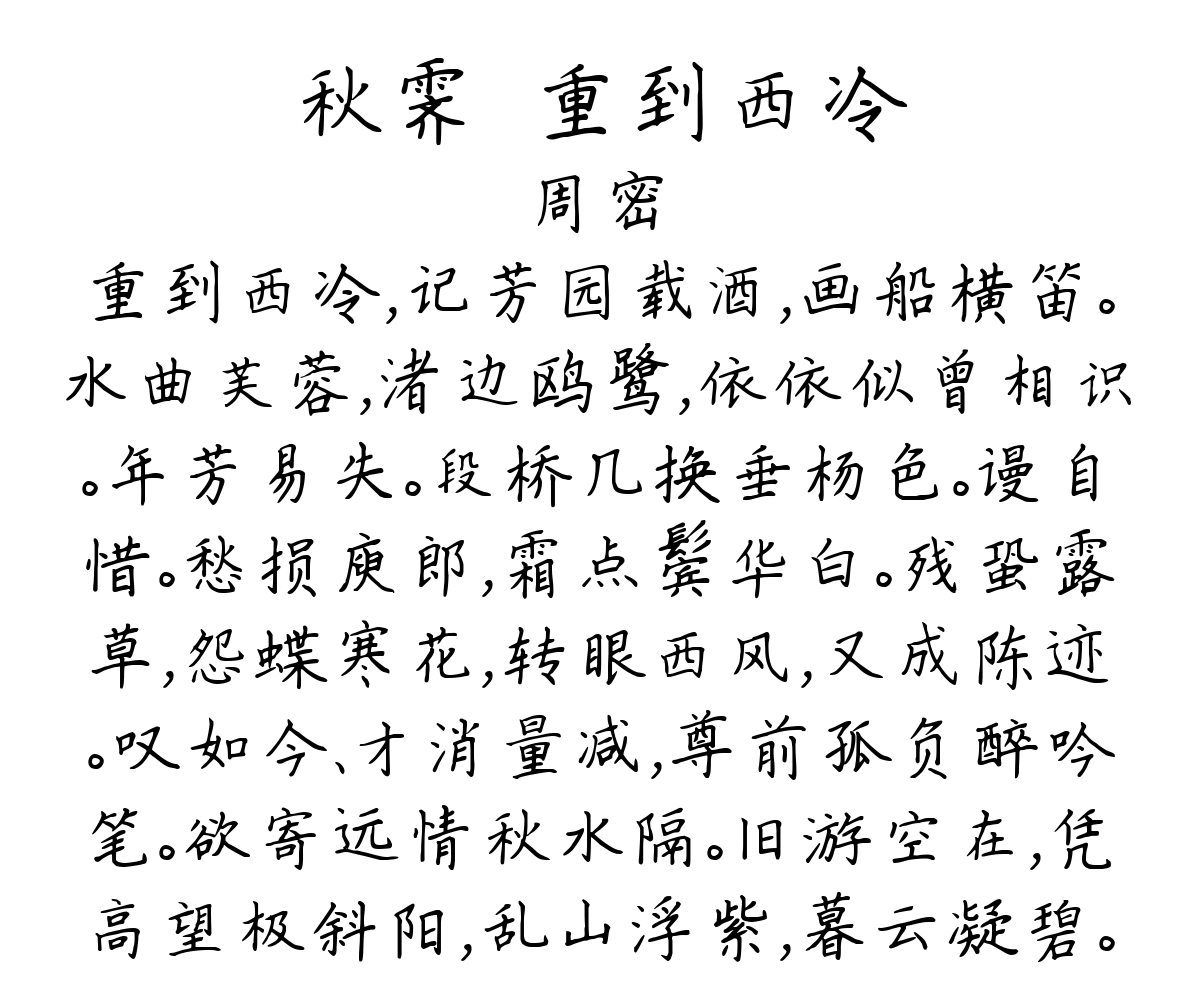 秋霁 重到西冷
周密
重到西冷,记芳园载酒,画船横笛。
水曲芙蓉,渚边鸥鹭,依依似曾相识
。年芳易失。段桥几换垂杨色。谩自
惜。愁损庾郎,霜点鬓华白。残蛩露
草,怨蝶寒花,转眼西风,又成陈迹
。叹如今、才消量减,尊前孤负醉吟
笔。欲寄远情秋水隔。旧游空在,凭
高望极斜阳,乱山浮紫,暮云凝碧。